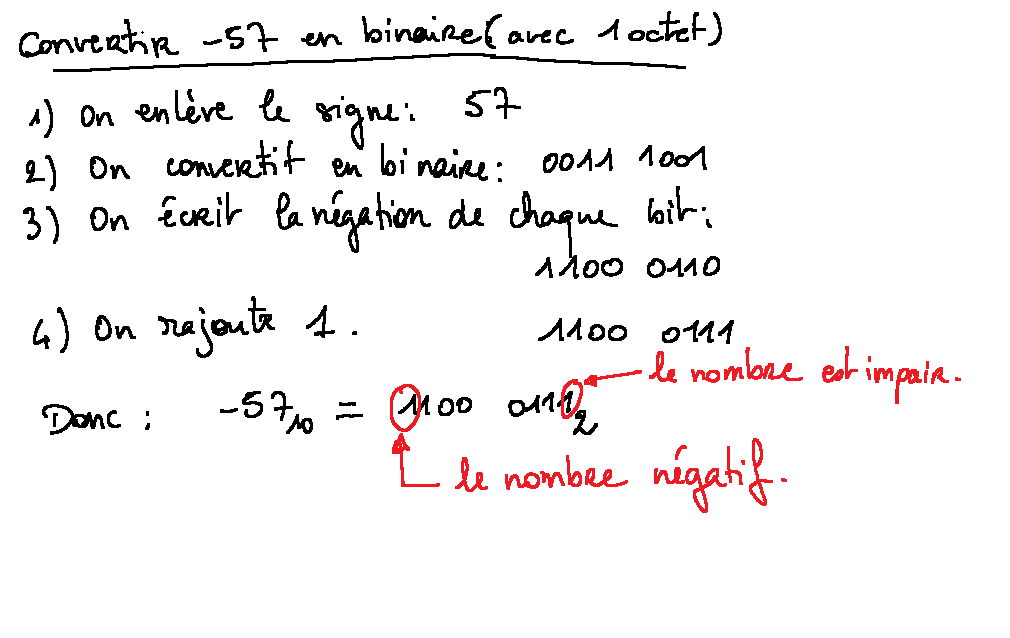 Convertir -57 en binaire (avec 1 octet)
1) On enlève le signe: 57
2) On convertit en binaire: 0011 1001
3) On écrit la négation de chaque bit:
1100 0110
4) On rajoute 1. 1100 0111
le nombre est impair.
Donc : -57₁₀ = 1100 0111₂
le nombre négatif.